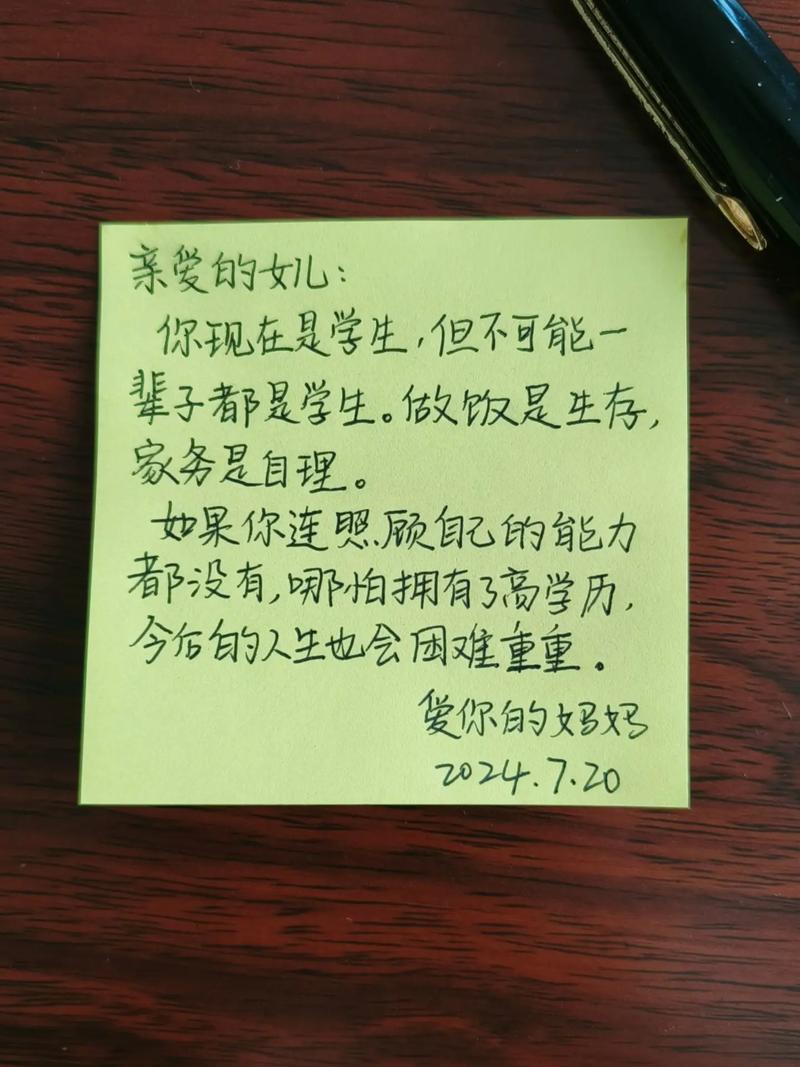 亲爱的女儿：
你现在是学生，但不可能一
辈子都是学生。做饭是生存，
家务是自理。
如果你连照顾自己的能力
都没有，哪怕拥有了高学历，
今后的人生也会困难重重。
爱你的妈妈
2024.7.20